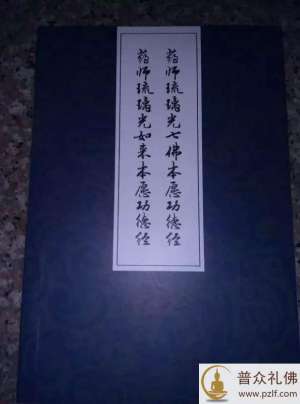 药师琉璃光七佛本愿功德经
药师琉璃光如来本愿功德经
普众礼佛
www.pzlf.com